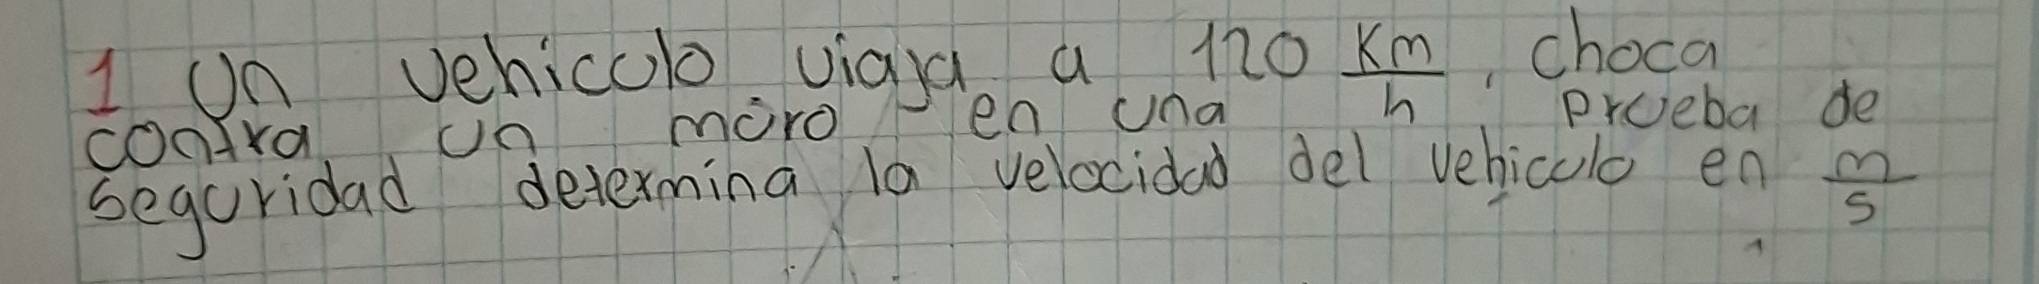 1 Un vehiculo viaja a 120 Km/h, choca
contra un muro en una prueba de
seguridad determina la velocidad del vehiculo en m/s